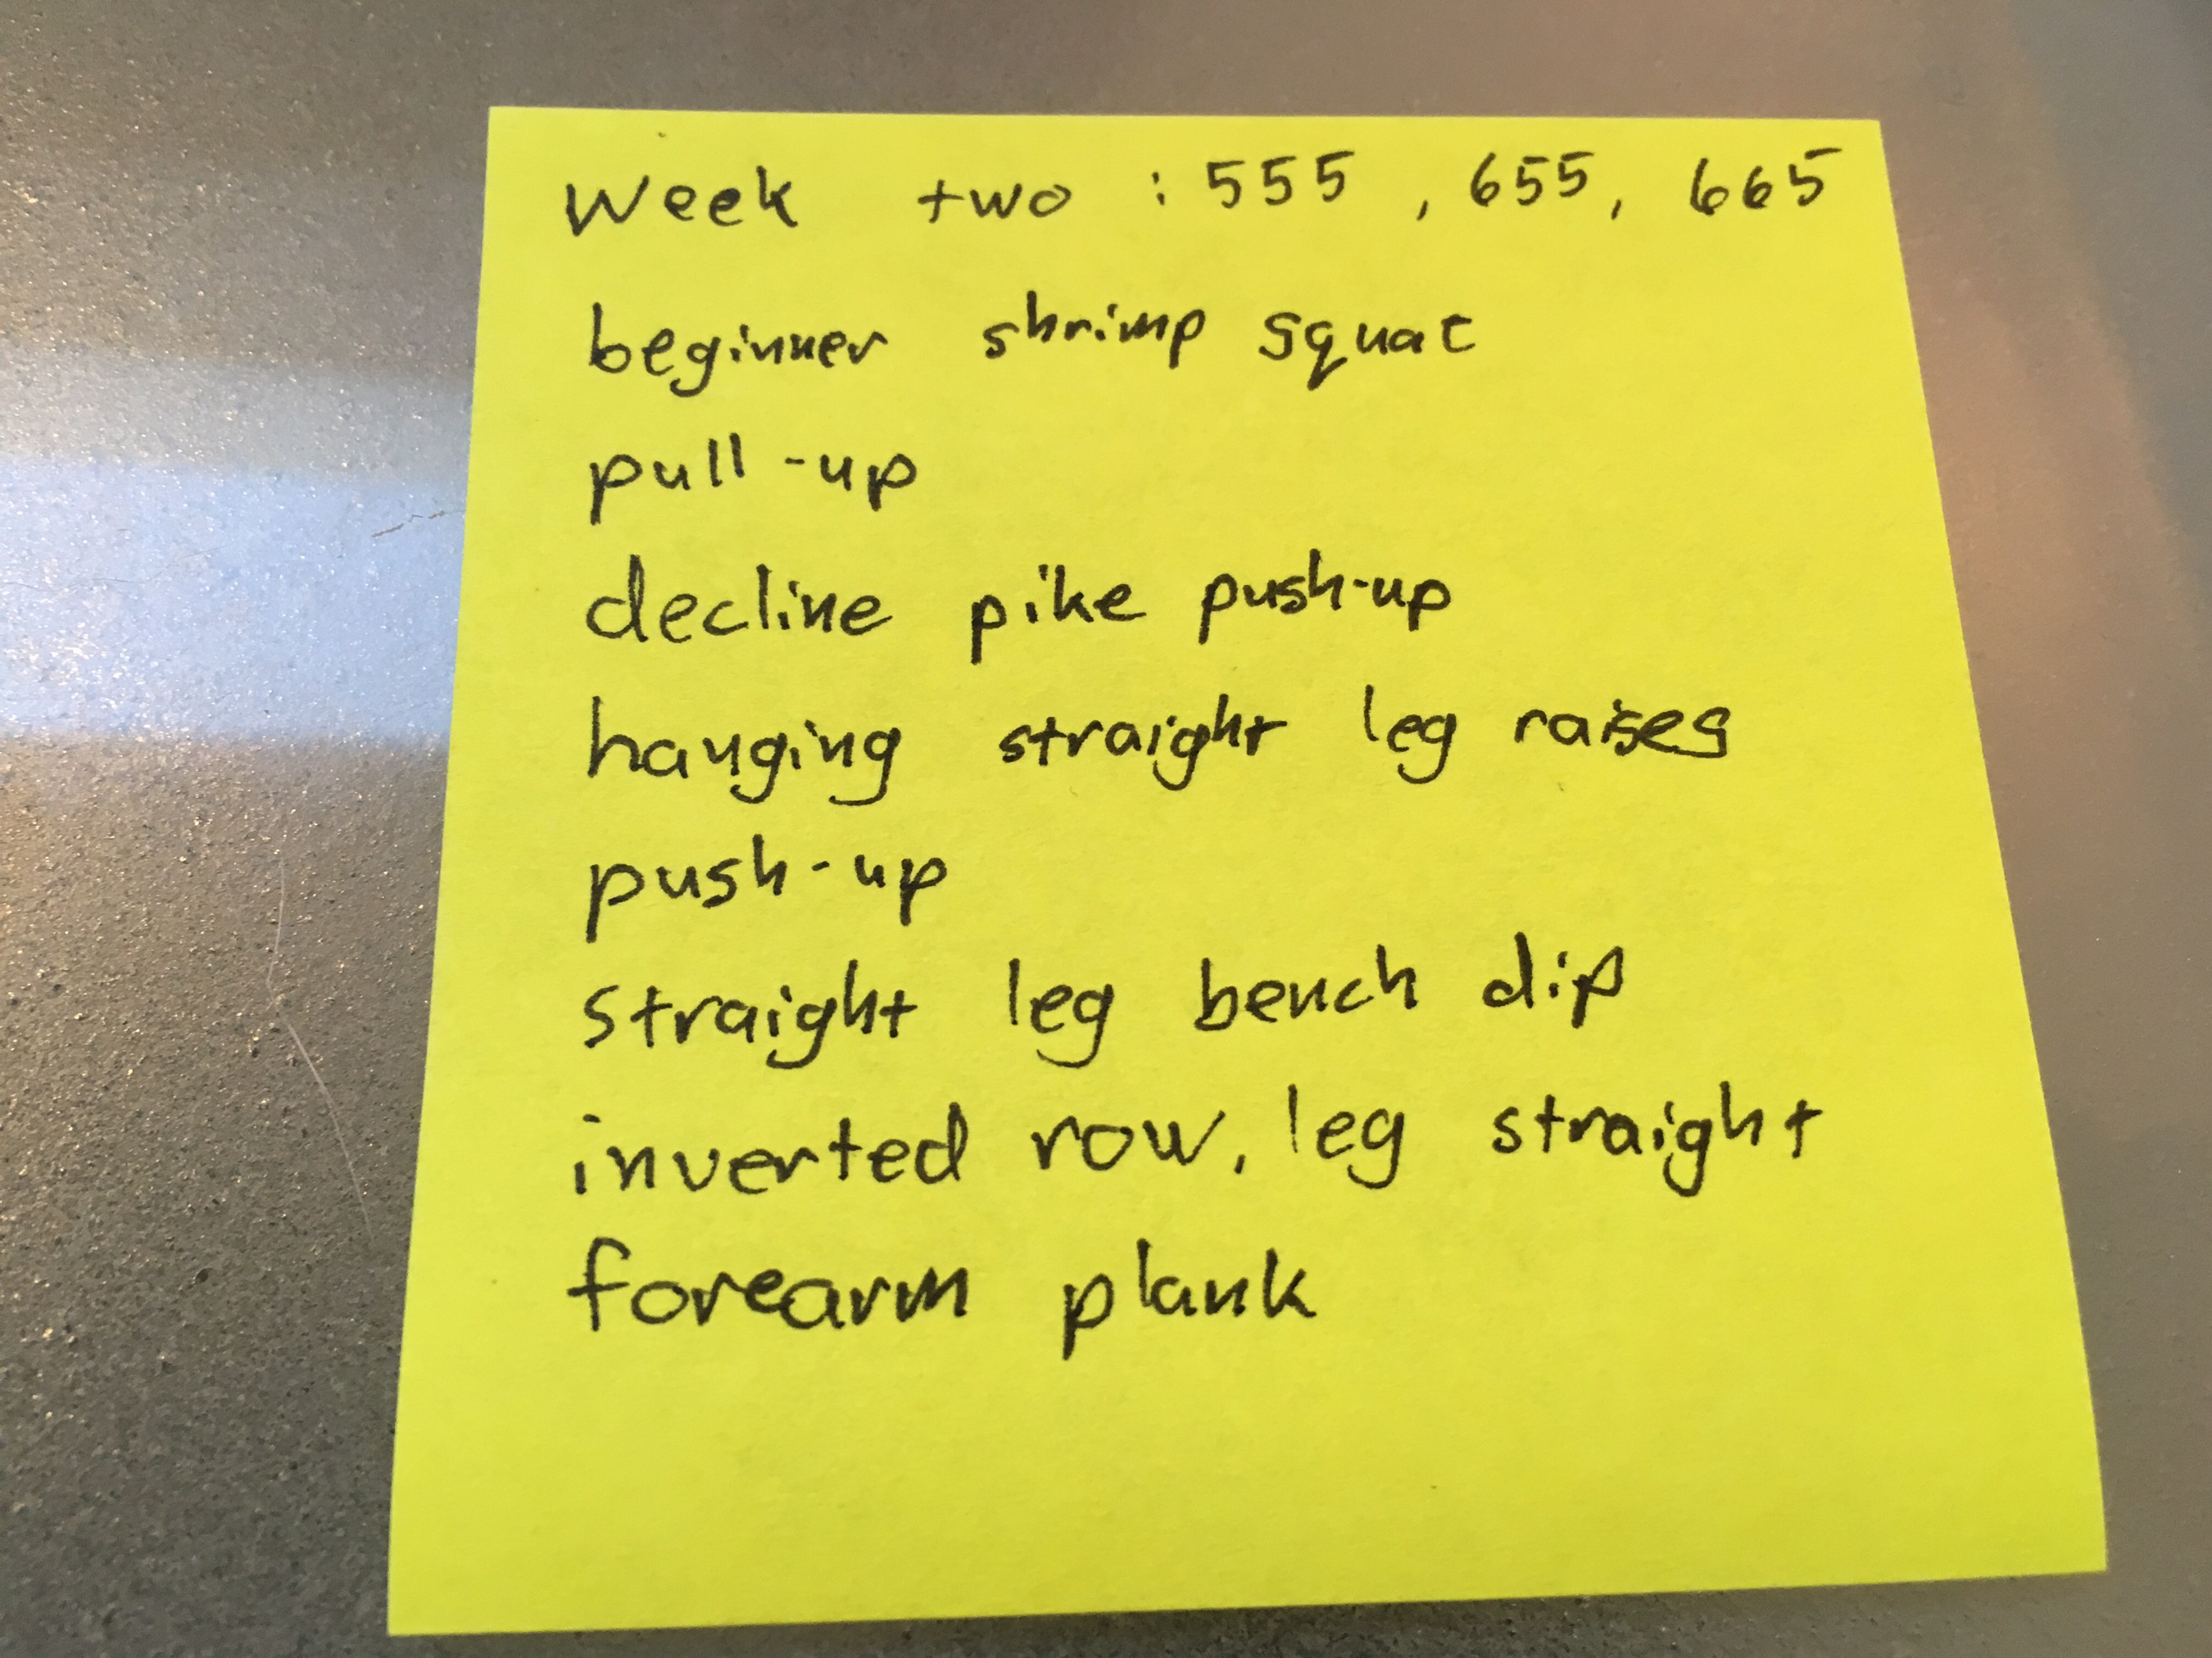 Week two : 555 , 655, 665
beginner shrimp squat
pull-up
decline pike push-up
hanging straight leg raises
push-up
straight leg bench dip
inverted row, leg straight
forearm plank